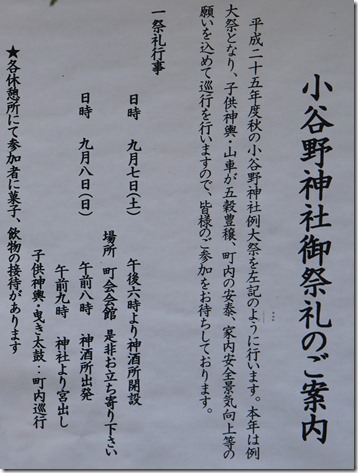 小谷野神社御祭礼のご案内
平成二十五年度秋の小谷野神社例大祭を左記のように行います。本年は例
大祭となり、子供神輿・山車が五穀豊穣、町内の安泰、家内安全景気向上等の
願いを込めて巡行を行いますので、皆様のご参加をお待ちしております。
一祭礼行事
日時 九月七日(土) 午後六時より神酒所開設
場所 町会会館 是非お立ち寄り下さい
日時 九月八日(日) 午前八時 神酒所出発
午前九時 神社より宮出し
子供神輿・曳き太鼓:町内巡行
★各休憩所にて参加者に菓子、飲物の接待があります